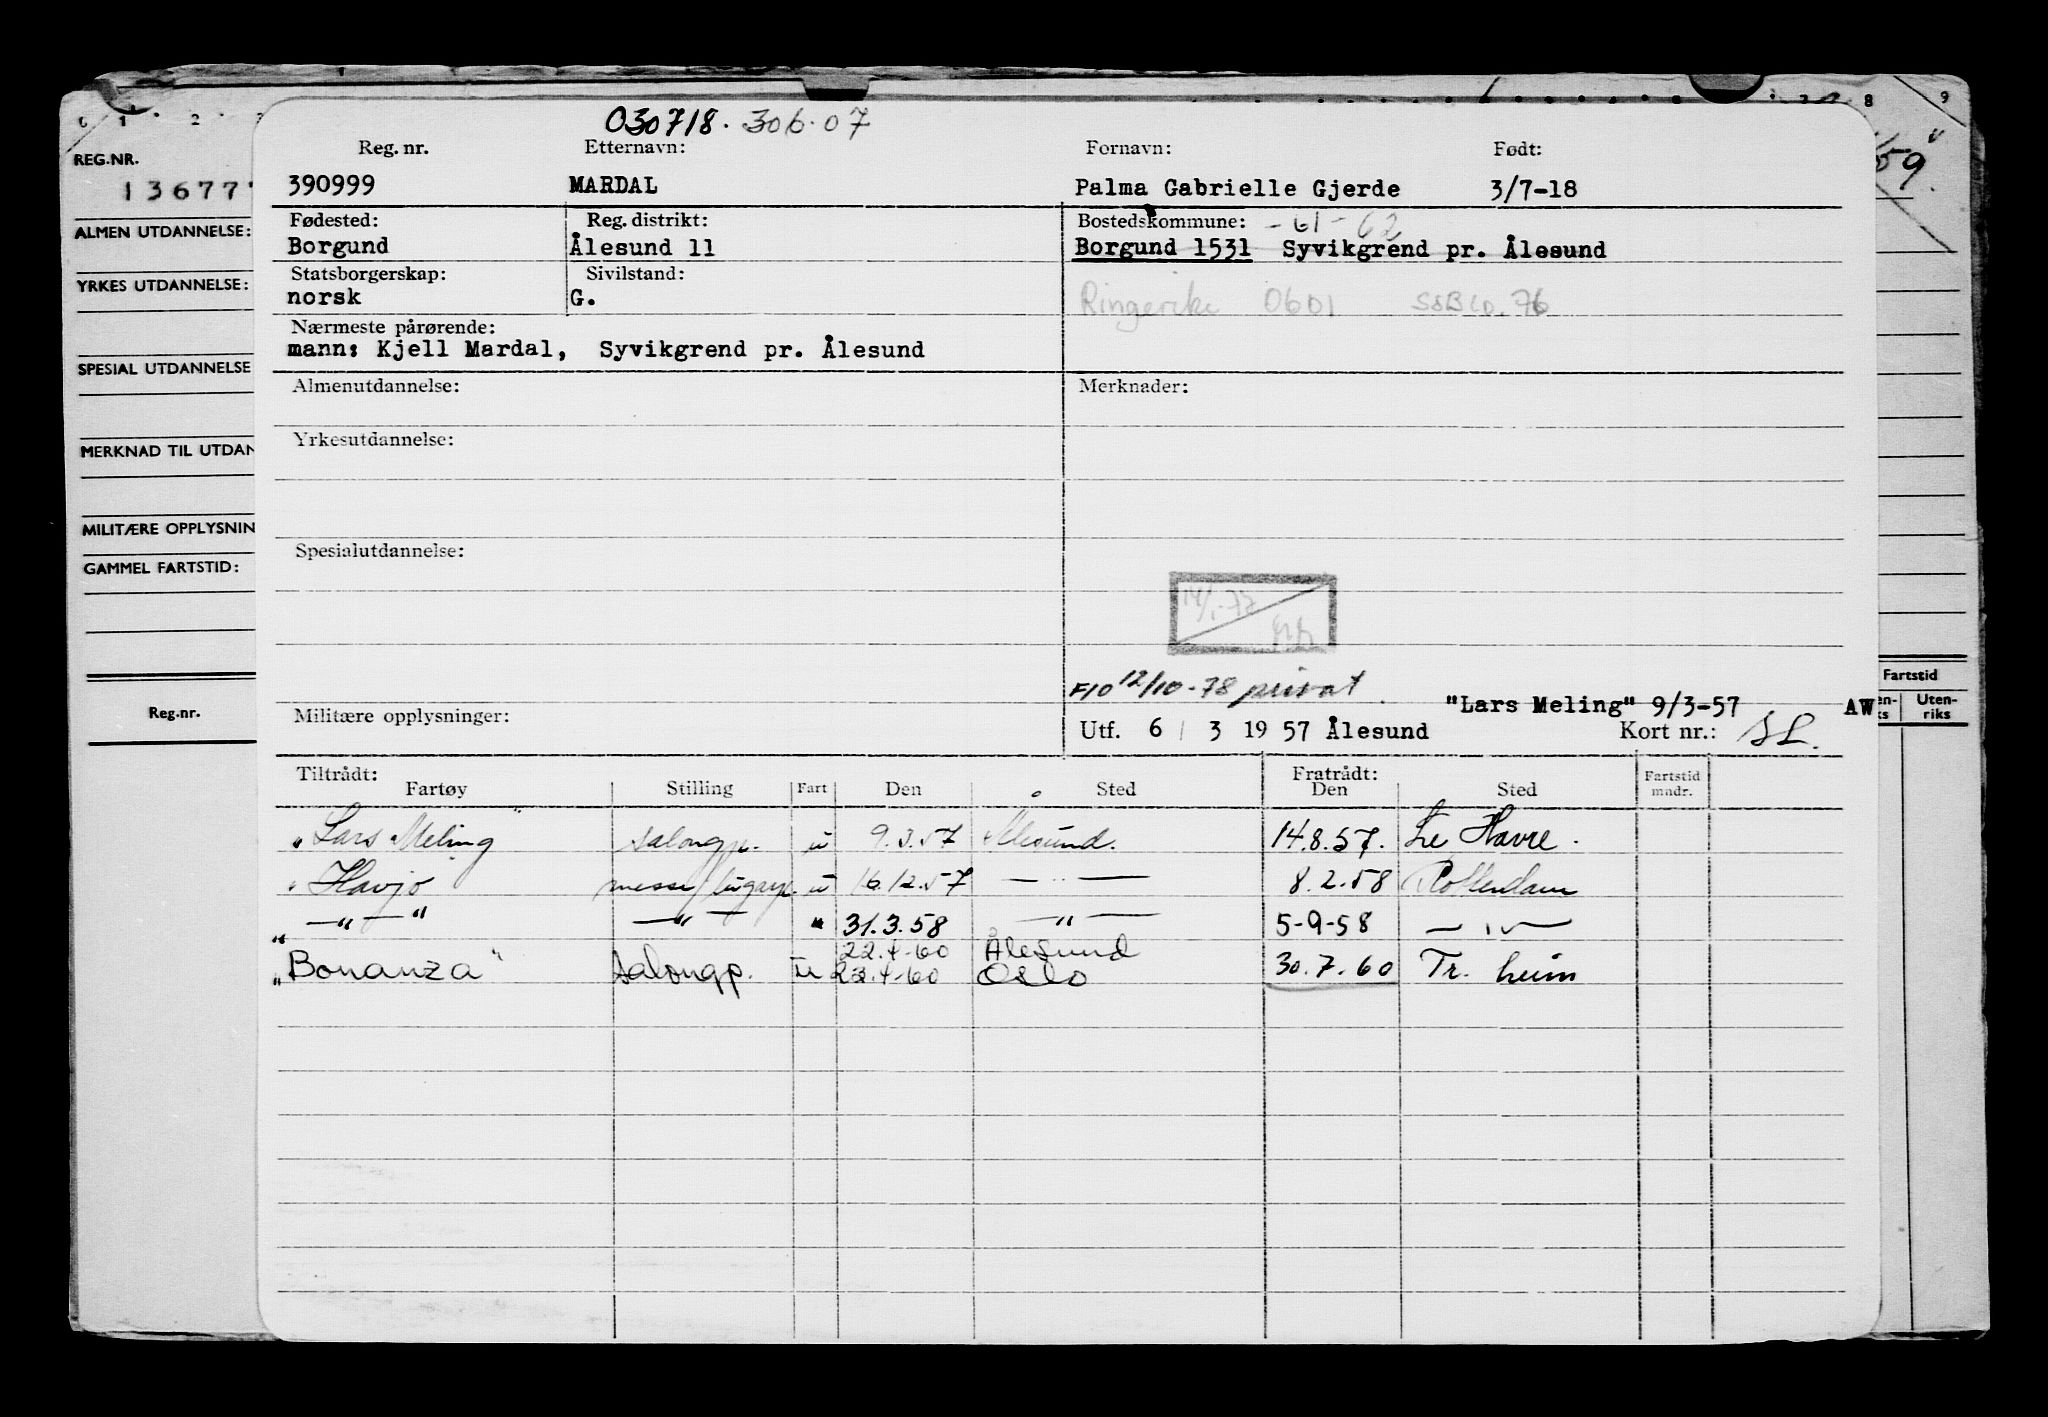 0 1 2 8 9
REG.NR.
13677
ALMEN UTDANNELSE:
YRKES UTDANNELSE:
SPESIAL UTDANNELSE
MERKNAD TIL UTDAN
MILITÆRE OPPLYSNIN
GAMMEL FARTSTID:
Reg.nr.
Fartstid
Uten-
riks
030718. 306.07
Reg. nr. Etternavn: Fornavn: Født:
390999 MARDAL Palma Gabrielle Gjerde 3/7-18
Fødested: Reg. distrikt: Bostedskommune: -61-62
Borgund Ålesund 11 Borgund 1531 Syvikgrend pr. Ålesund
Statsborgerskap: Sivilstand:
norsk G. Ringerike 0601
Nærmeste pårørende:
mann: Kjell Mardal, Syvikgrend pr. Ålesund
Almenutdannelse: Merknader:
Yrkesutdannelse:
Spesialutdannelse:
F10 12/10-78 privat
"Lars Meling" 9/3-57 AW
Militære opplysninger: Utf. 6 / 3 19 57 Ålesund Kort nr.: SL.
Tiltrådt: Fratrådt: Fartstid
Fartøy Stilling Fart Den Sted Den Sted mndr.
"Lars Meling" salongp. u 9.3.57 Ålesund. 14.8.57. Le Havre.
" Havjo messe/lugarp. u 16.12.57 — " — 8.2.58 Rotterdam
— " — " — " — " 31.3.58 — " — 5-9-58 — " —
22.4-60 Ålesund
"Bonanza" salongp. u 23.4-60 Oslo 30.7.60 Tr. heim